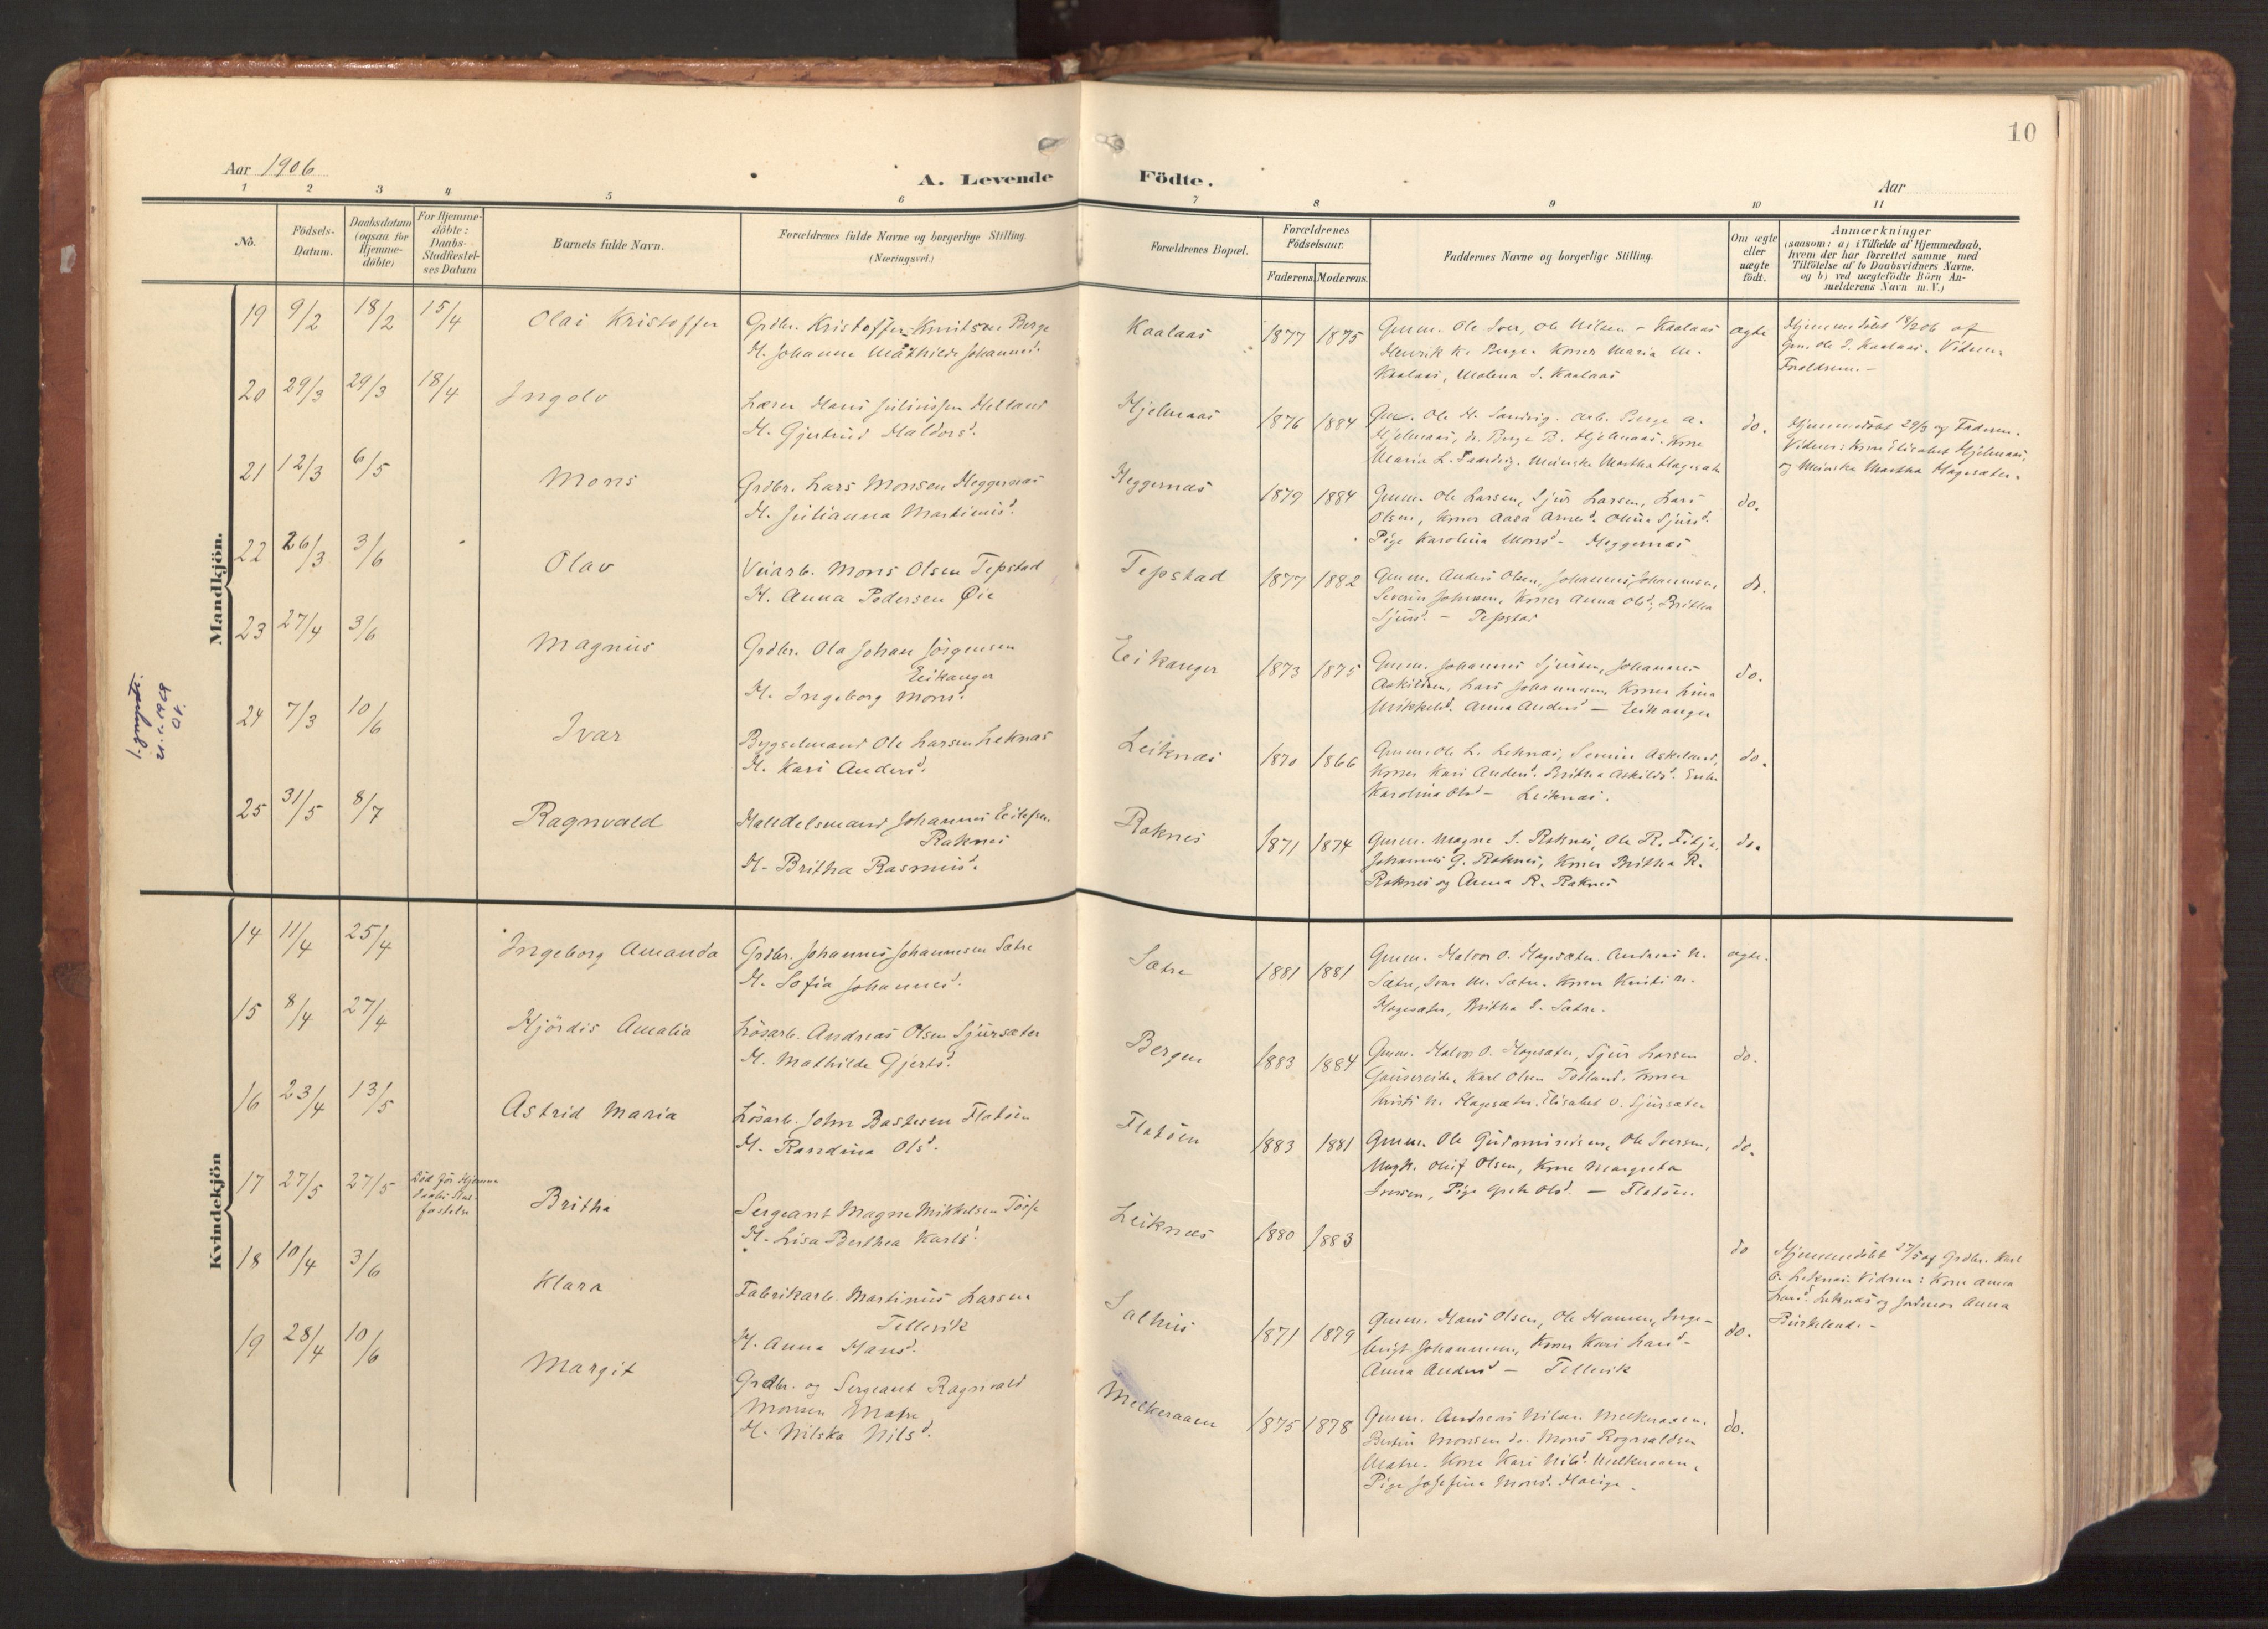 10
Aar 1906
A. Levende Födte.
Aar
1 2 3 4 5 6 7 8 9 10 11
No.
Födsels-
Datum.
Daabsdatum
(ogsaa for
Hjemme-
döbte)
For Hjemme-
döbte:
Daabs-
Stadfæstel-
ses Datum
Barnets fulde Navn.
Forældrenes fulde Navne og borgerlige Stilling.
(Næringsvei.)
Forældrenes Bopæl.
Forældrenes
Födselsaar.
Faderens. Moderens.
Faddernes Navne og borgerlige Stilling.
Om ægte
eller
uægte
födt.
Anmærkninger
(saasom: a) i Tilfælde af Hjemmedaab,
hvem der har forrettet samme med
Tilföielse af to Daabsvidners Navne.
og b) ved uægtefödte Börn An-
melderens Navn m. V.)
Mandkjön.
19 9/2 18/2 15/4 Olai Kristoffer
Grdbr. Kristoffer Knutsen Berge
H. Johanne Mathilde Johannesd.
Kaalaas 1877 1875
Gmm. Ole Iver, Ole Nilsen - Kaalaas
Henrik K. Berge. Koner Maria M.
Kaalaas, Malena I. Kaalaas
ægte
Hjemmedöbt 18/2 06 af
Gm. Ole I. Kaalaas. Vidner:
Forældrene. -
20 29/3 29/3 18/4 Ingolv
Lærer Hans Juliussen Helland
H. Gjertrud Haldorsd.
Hjelmaas 1876 1884
Gm. Ole H. Sandvig. Arb. Berge A.
Hjelmaas, do. Berge B. Hjelmaas. Kone
Maria L. Sandvig. Meieske Martha Hagesæter
do.
Hjemmedöbt 29/3 af Faderen.
Vidner: Kone Elisabet Hjelmaas,
og Meierske Martha Hagesæter.
21 12/3 6/5 Mons
Grdbr. Lars Monsen Heggernæs
H. Julianna Martinusd.
Heggernæs 1879 1884
Gmm. Ole Larsen, Sjur Larsen, Lars
Olsen, Koner Aasa Arnesd. Olina Sjursd.
Pige Karolina Monsd - Heggernæs
do.
22 26/3 3/6 Olav
Veiarb. Mons Olsen Tepstad
H. Anna Pedersen Öie
Tepstad 1877 1882
Gmm. Anders Olsen, Johannes Johannessen,
Severin Johnsen, Koner Anna Olsd, Britha
Sjursd. - Tepstad
do.
23 27/4 3/6 Magnus
Grdbr. Ola Johan Jörgensen
Eikanger
H. Ingeborg Monsd.
Eikanger 1873 1875
Gmm. Johannes Sjursen, Johannes
Askildsen, Lars Johannessen, Koner Lina
Mikkelsd. Anna Andersd - Eikanger
do.
24 7/3 10/6 Ivar
Bygselmand Ole Larsen Leknæs
H. Kari Andersd.
Leiknæs 1870 1866
Gmm. Ole L. Leknæs, Askeland,
Koner Kari Andersd. Britha Askildsd. Enke
Karolina Olsd - Leiknæs.
do.
25 31/5 8/7 Ragnvald
Handelsmand Johannes Eilefsen
Raknes
H. Britha Rasmusd.
Raknes 1871 1874
Gmm. Magne S. Raknes, Ole R. Fitje,
Johannes G. Raknes, Koner Britha R.
Raknes og Anna R. Raknes
do.
Kvindekjön
14 11/4 25/4 Ingeborg Amanda
Grdbr. Johannes Johannesen Sætre
H. Sofia Johannesd.
Sætre 1881 1881
Gmm. Halvor O. Hagesæter. Andreas N.
Sætre, Ivar M. Sætre. Koner Kristi N.
Hagesæter, Britha I. Sætre.
ægte.
15 8/4 27/4 Hjördis Amalia
Lösarb. Andreas Olsen Sjursæter
H. Mathilde Gjertsd.
Bergen 1883 1884
Gmm. Halvor O. Hagesæter, Sjur Larsen
Gausereide, Karl Olsen Todland. Koner
Kristi N. Hagesæter. Elisabet O. Sjursæter
do.
16 23/4 13/5 Astrid Maria
Lösarb. John Bastesen Flatöen
H. Randina Olsd.
Flatöen 1883 1881
Gmm. Ole Gudmundsen, Ole Iversen,
Ungk. Oluf Olsen, Kone Margreta
Iversen, Pige Grete Olsd. - Flatöen.
do.
17 27/5 27/5 Död för Hjemme
Britha
Sergeant Magne Mikkelsen
H. Lisa Berthea Karlsd
Leiknæs 1880 1883
do
Hjemmedöbt 27/5 af Grdbr. Karl
O. Leknæs. Vidner: Kone Anna
Larsd. Leknæs og Jordmor Anna
Birkeland. -
18 10/4 3/6 Klara
Fabrikarb. Martinus Larsen
Tellevik
H. Anna Hansd.
Salhus 1871 1879
Gmm. Hans Olsen, Ole Hansen, Inge-
brigt Johannessen, Koner Kari Larsd -
Anna Andersd - Tellevik
do.
19 28/4 10/6 Margit
Grdbr. og Sergeant Ragnvald
Monsen Matre
H. Nilska Nilsd.
Melkeraaen 1875 1878
Gmm. Andreas Nilsen Melkeraaen.
Monsen do. Mons Rognvaldsen
Matre. Kone Kari Nilsd. Melkeraaen,
Pige Josefina Monsd. Hauge.
do.